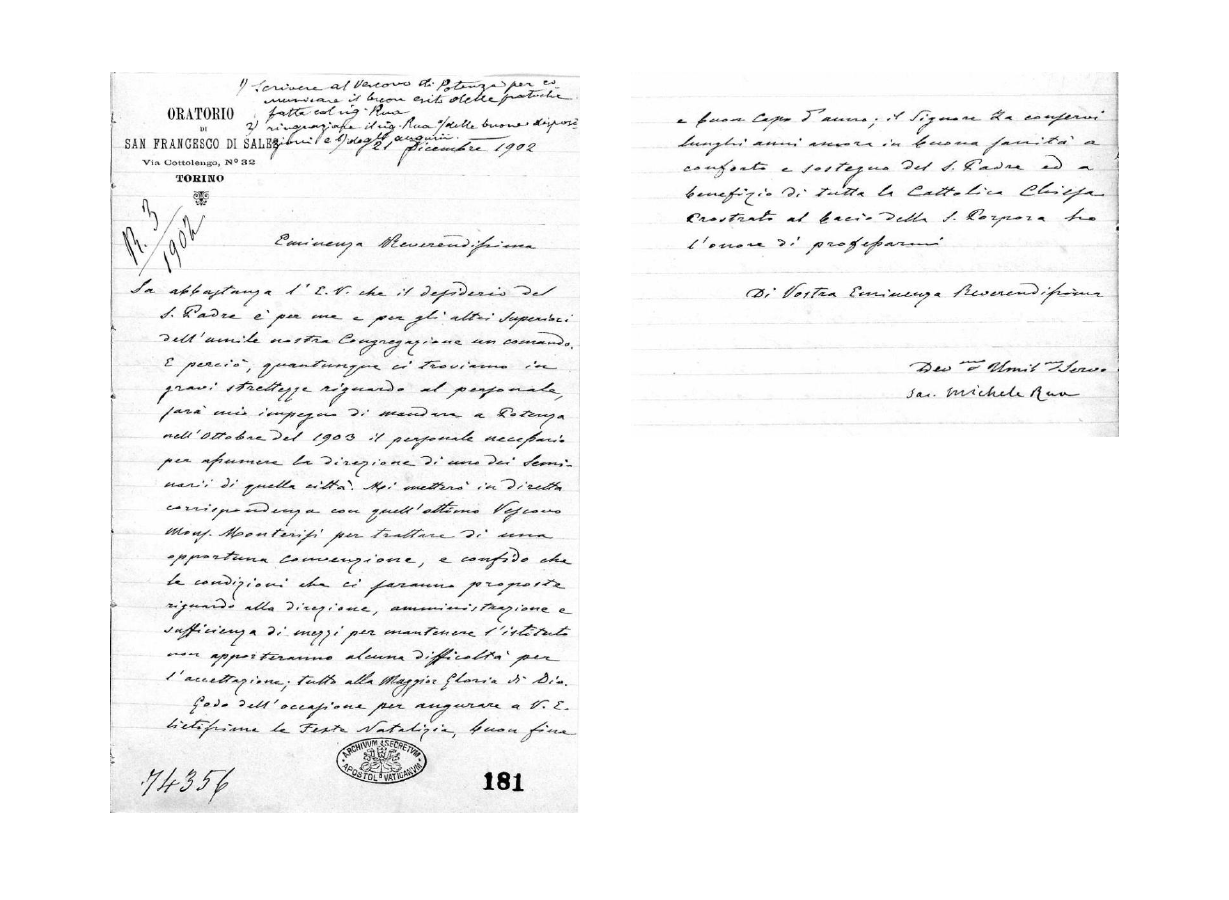 1) Scrivere al Vescovo di Potenza per co-
municare il buon esito delle pratiche
fatte col sig. Rua
2) ringraziare il sig. Rua a) delle buone disposi-
zioni e b) degli augurii.
ORATORIO
DI
SAN FRANCESCO DI SALES
Via Cottolengo, Nº 32
TORINO
21 Dicembre 1902
N. 3
1902
Eminenza Reverendissima
Sa abbastanza l'E.V. che il desiderio del
S. Padre è per me e per gli altri Superiori
dell'umile nostra Congregazione un comando.
E perciò, quantunque ci troviamo in
gravi strettezze riguardo al personale,
sarà mio impegno di mandare a Potenza
nell'Ottobre del 1903 il personale necessario
per assumere la direzione di uno dei Semi-
narii di quella città. Mi metterò in diretta
corrispondenza con quell'ottimo Vescovo
Mons. Monterisi per trattare di una
opportuna convenzione, e confido che
le condizioni che ci saranno proposte
riguardo alla direzione, amministrazione e
sufficienza di mezzi per mantenere l'istituto
non apporteranno alcuna difficoltà per
l'accettazione; tutto alla Maggior Gloria di Dio.
Godo dell'occasione per augurare a V. E.
lietissime le Feste Natalizie, buon fine
ARCHIVUM SECRETUM
APOSTOL. VATICANUM
74356
181
e buon Capo d'anno; il Signore La conservi
lunghi anni ancora in buona sanità a
conforto e sostegno del S. Padre ed a
benefizio di tutta la Cattolica Chiesa
Prostrato al bacio della S. Porpora ho
l'onore di professarmi
Di Vostra Eminenza Reverendissima
Dev.mo Umil.mo Servo
Sac. Michele Rua